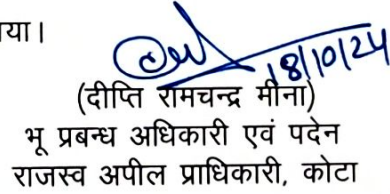 या।
18/10/24
(दीप्ति रामचन्द्र मीना)
भू प्रबन्ध अधिकारी एवं पदेन
राजस्व अपील प्राधिकारी, कोटा